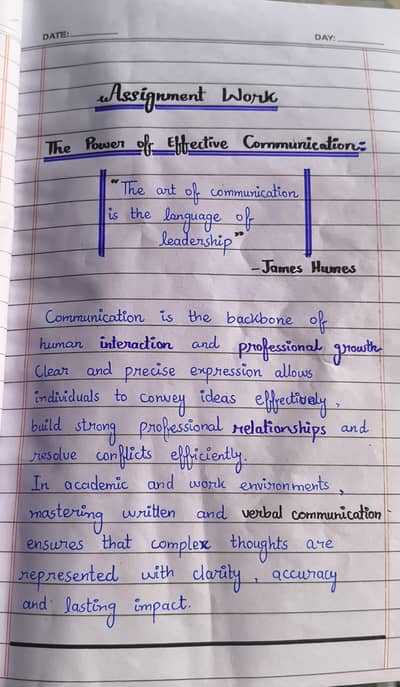 DATE:
DAY:
Assignment Work
The Power of Effective Communication:
"The art of communication
is the language of
leadership"
-James Humes
Communication is the backbone of
human interaction and professional growth
Clear and precise expression allows
individuals to convey ideas effectively,
build strong professional relationships and
resolve conflicts efficiently.
In academic and work environments,
mastering written and verbal communication
ensures that complex thoughts are
represented with clarity, accuracy
and lasting impact.